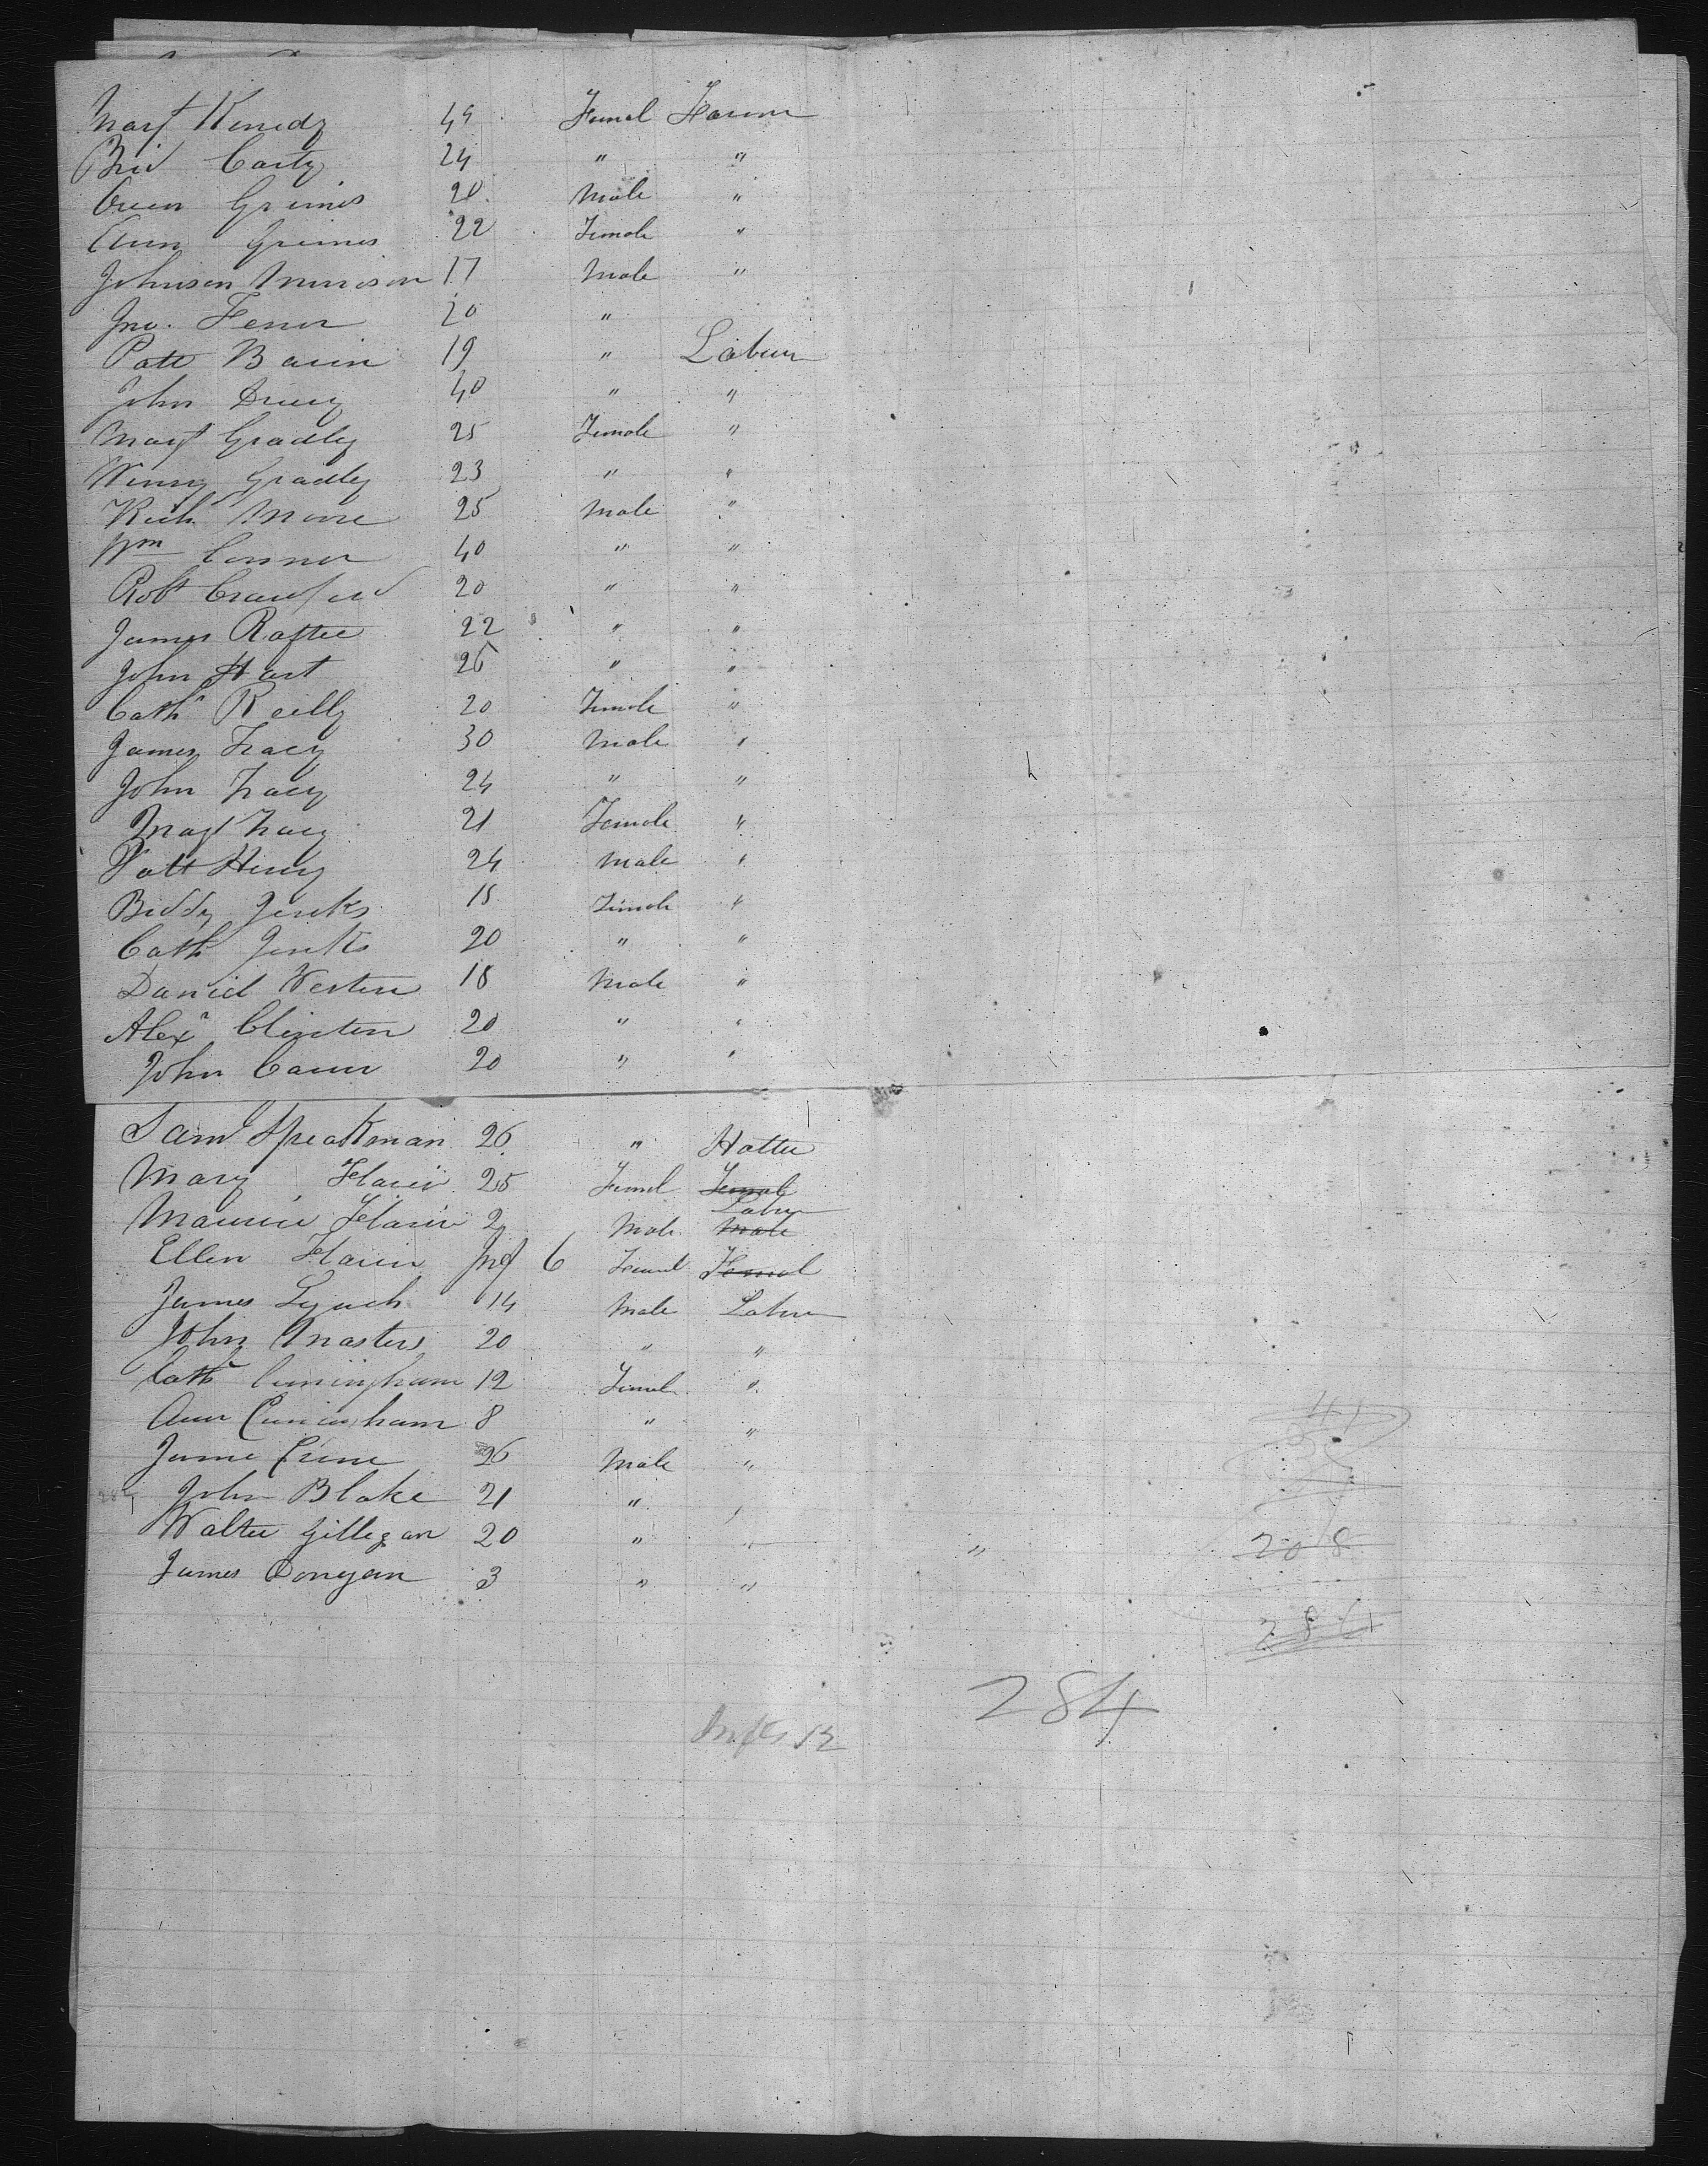 Margt Kenedy 49 Femal Farmr
Brid Carty 24 " "
Owen Grimes 20 Male "
Ann Grimes 22 Female "
Johnson Morrison 17 Male "
Jno. Feror 20 "
Patt Bacin 19 " Labur
John Drury 40 " "
Margt Gradley 25 Female "
Winny Gradley 23 " "
Rich Moore 25 Male "
Wm Connor 40 " "
Robt Crawford 20 " "
James Raftee 22 " "
John Hart 26 " "
Cathn Reilly 20 Female "
James Tracy 30 Male "
John Tracy 24 " "
Magt Tracy 21 Female "
Patt Henry 24 Male "
Biddy Jenks 18 Female "
Cath Jenks 20 " "
Daniel Western 18 Male "
Alexr Clinton 20 " "
John Caun 20 " "
Saml Speakman 26 " Hatter
Mary 25 Femel Femal
Labur
Maurice 2 Male Male
Ellen Inf 6 Femal Femal
James Lynch 14 Male Labur
John Masters 20 " "
Cath Cuningham 12 Female "
Ann Cuningham 8 " "
26 Male "
John Blake 21 " "
Walter Gilligan 20 " " "
208
James Donegan 3 " "
284
284
Infts 13